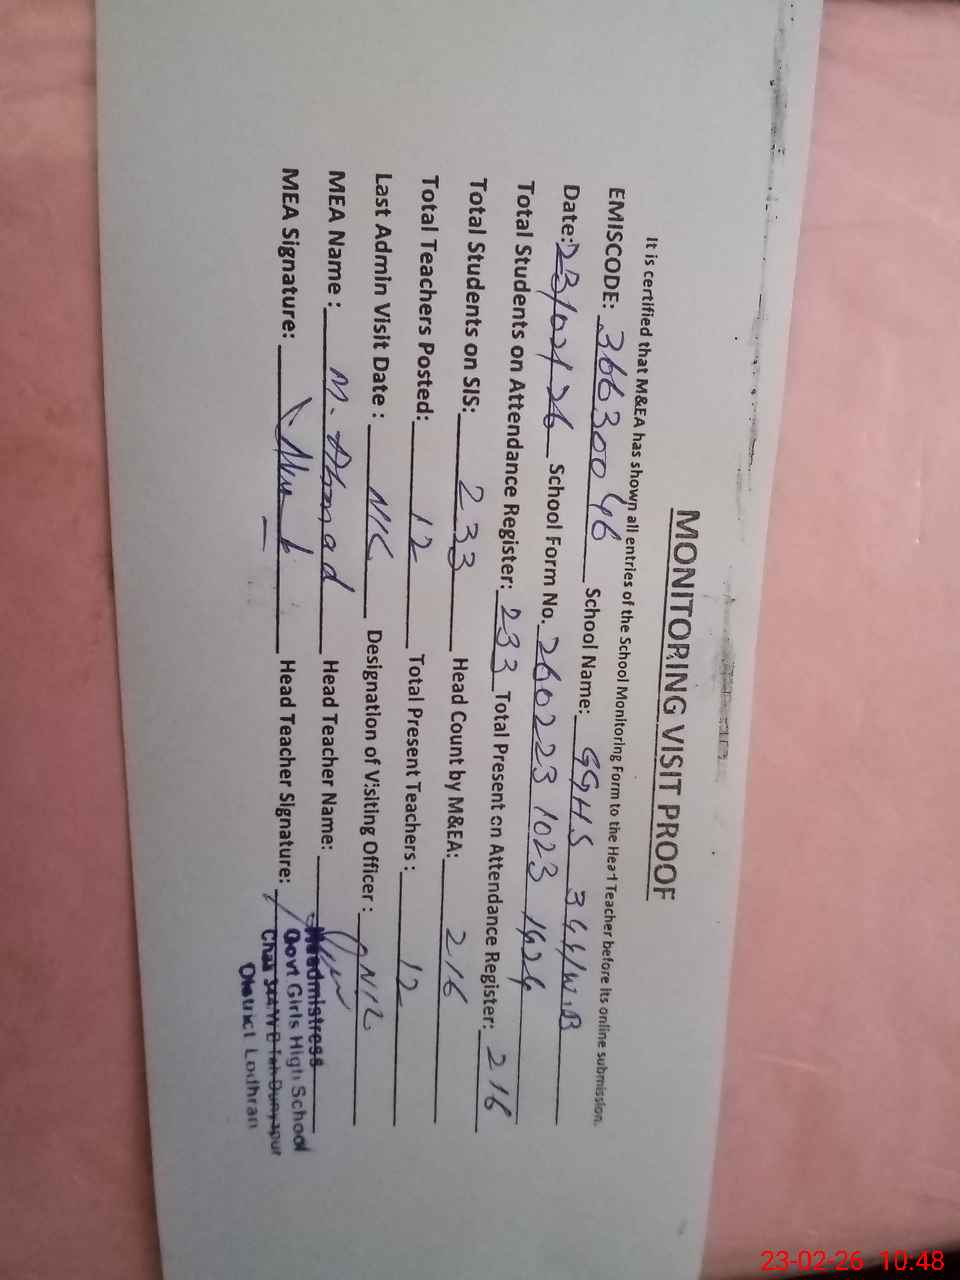 MONITORING VISIT PROOF
It is certified that M&EA has shown all entries of the School Monitoring Form to the Head Teacher before its online submission.
EMISCODE: 36630046 School Name: GGHS 344/W.B
Date: 23/02/26 School Form No. 260223 1023 1924
Total Students on Attendance Register: 233 Total Present on Attendance Register: 216
Total Students on SIS: 233 Head Count by M&EA: 216
Total Teachers Posted: 12 Total Present Teachers: 12
Last Admin Visit Date : NIL Designation of Visiting Officer : NIL
MEA Name : M. Ahmad Head Teacher Name:
MEA Signature: Head Teacher Signature:
Headmistress
Govt Girls High School
Chak 344 W B Teh Dunyapur
District Lodhran
23-02-26 10:48